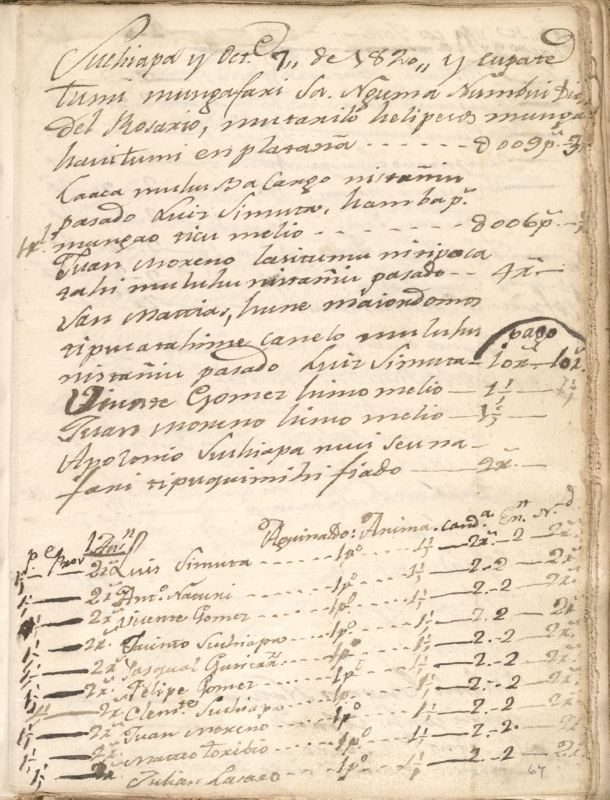 Suchiapa y Oct.e 7,, de 1820,, y cupate
tumi mungafari Sa. Nguma Numbui Dio
del Rosario, mutarilo helipesos munga
hauitumi en plataña - - - - - - 8009p.s 3
Caaca muluu Ba Cargo nistañiu
pasado Luis Simuta, hambap.
mungao ticu melio - - - - - - 8006p.
Juan Moreno lasitumu nisipoca
tahi muluhu nistañiu pasado - - 4x.s
San Mattias, hune maiordomos
tipucatahime canelo muluhu pago
nistañiu pasado Luis Simuta - 10x 10x.
Vicente Gomez himo melio - 1½ - 1½
Juan Moreno himo melio - 1½ -
Apolonio Suchiapa nuui seuna -
fani tipuquimihi fiado - 2x.
p.e Prov Aguinaldo: Anima. Cand.a En.n N. d.
1½ - 2x Luis Simuta - - - 1p.o - - - 1½ - 2x - 2 - 2x.
1½ - 2x Ant.o Natuni - - - 1p.o - - - 1½ - 2 - 2 - 2x.
1½ - 2x Vicente Gomez - - - 1p.o - - - 1½ - 2 - 2 - 2x.
1½ - 2x Jacinto Suchiapa - - - 1p.o - - - 1½ - 2 - 2 - 2x.
1½ - 2x Pasqual - - - 1p.o - - - 1½ - 2 - 2 - 2x.
1½ - 2x Felipe Gomez - - - 1p.o - - - 1½ - 2 - 2 - 2x.
1½ - 2x Clem.te Suchiapa - - - 1p.o - - - 1½ - 2 - 2 - 2x.
1½ - 2x Juan Moreno - - - 1p.o - - - 1½ - 2 - 2 - 2x.
1½ - 2x Matteo Toribio - - - 1p.o - - - 1½ - 2 - 2 - 2x.
1½ - 2x Julian Lasaro - - - 1p.o - - - 1½ - 2 - 2 - 2x.
64